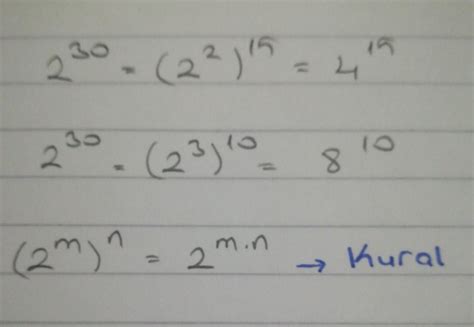 2³⁰ = (2²)¹⁵ = 4¹⁵
2³⁰ = (2³)¹⁰ = 8¹⁰
(2ᵐ)ⁿ = 2ᵐ·ⁿ → Kural